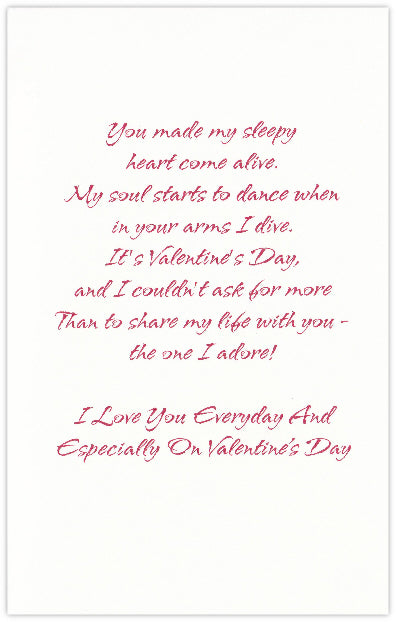 You made my sleepy
heart come alive.
My soul starts to dance when
in your arms I dive.
It's Valentine's Day,
and I couldn't ask for more
Than to share my life with you -
the one I adore!
I Love You Everyday And
Especially On Valentine's Day